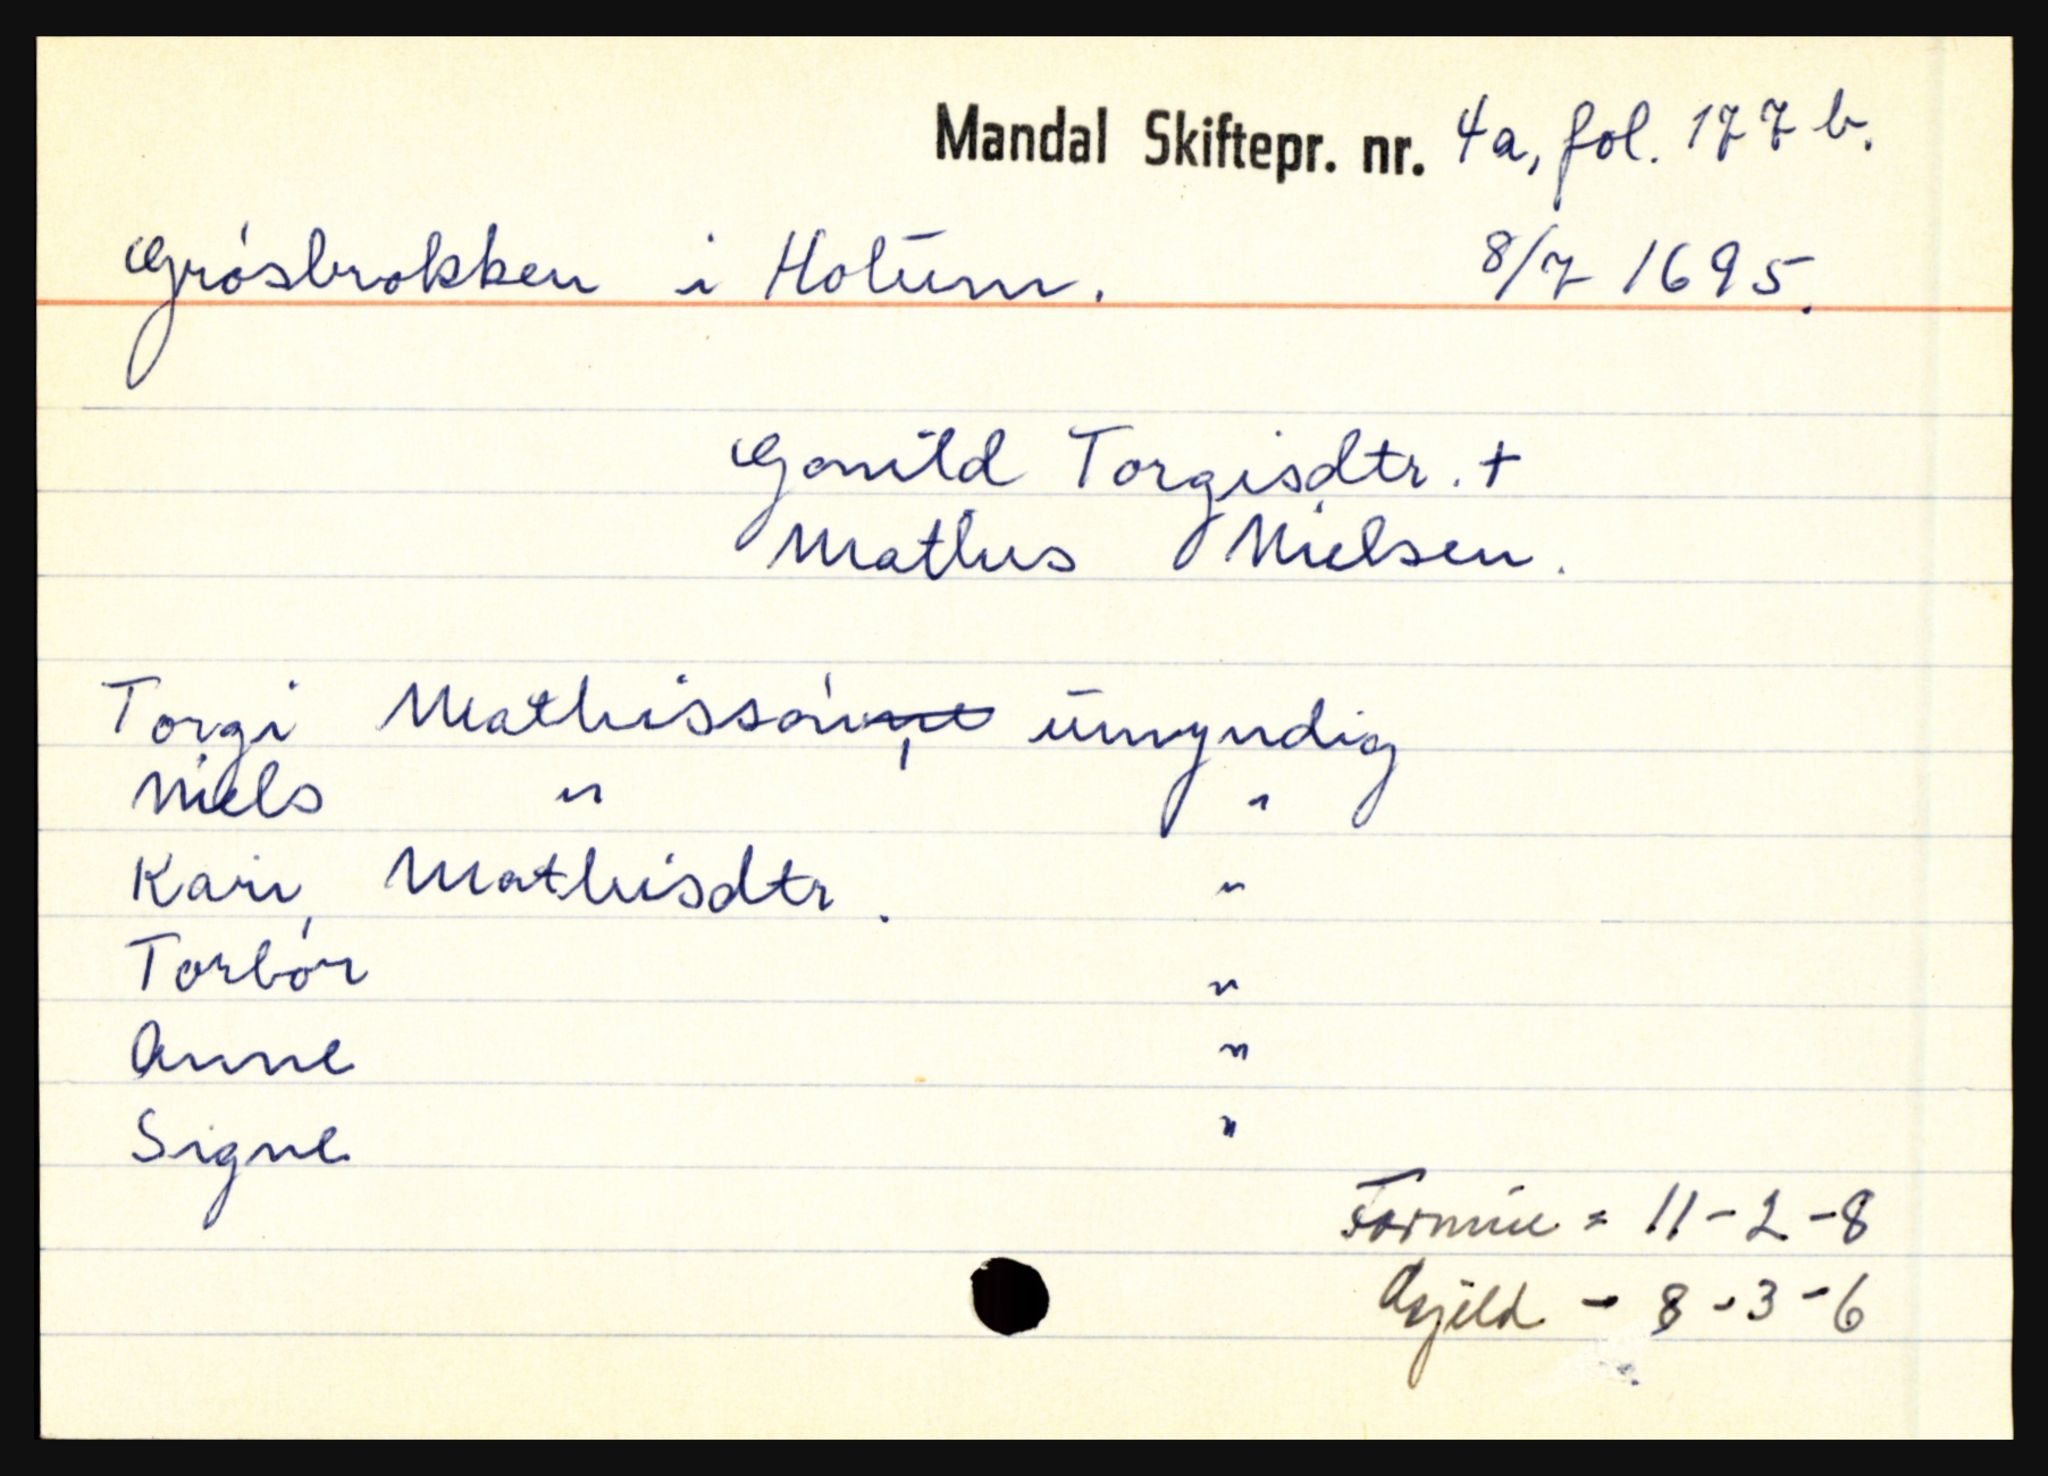 Mandal Skiftepr. nr. 4a, fol. 177 b.
Grósbrokken i Holum. 8/7 1695.
Gonild Torgisdtr. +
Mathis Nielsen.
Torgi Mathissón umyndig
Niels " "
Kari Mathisdtr. "
Torbór "
Anne "
Signe "
Formue = 11-2-8
Gjeld - 8-3-6